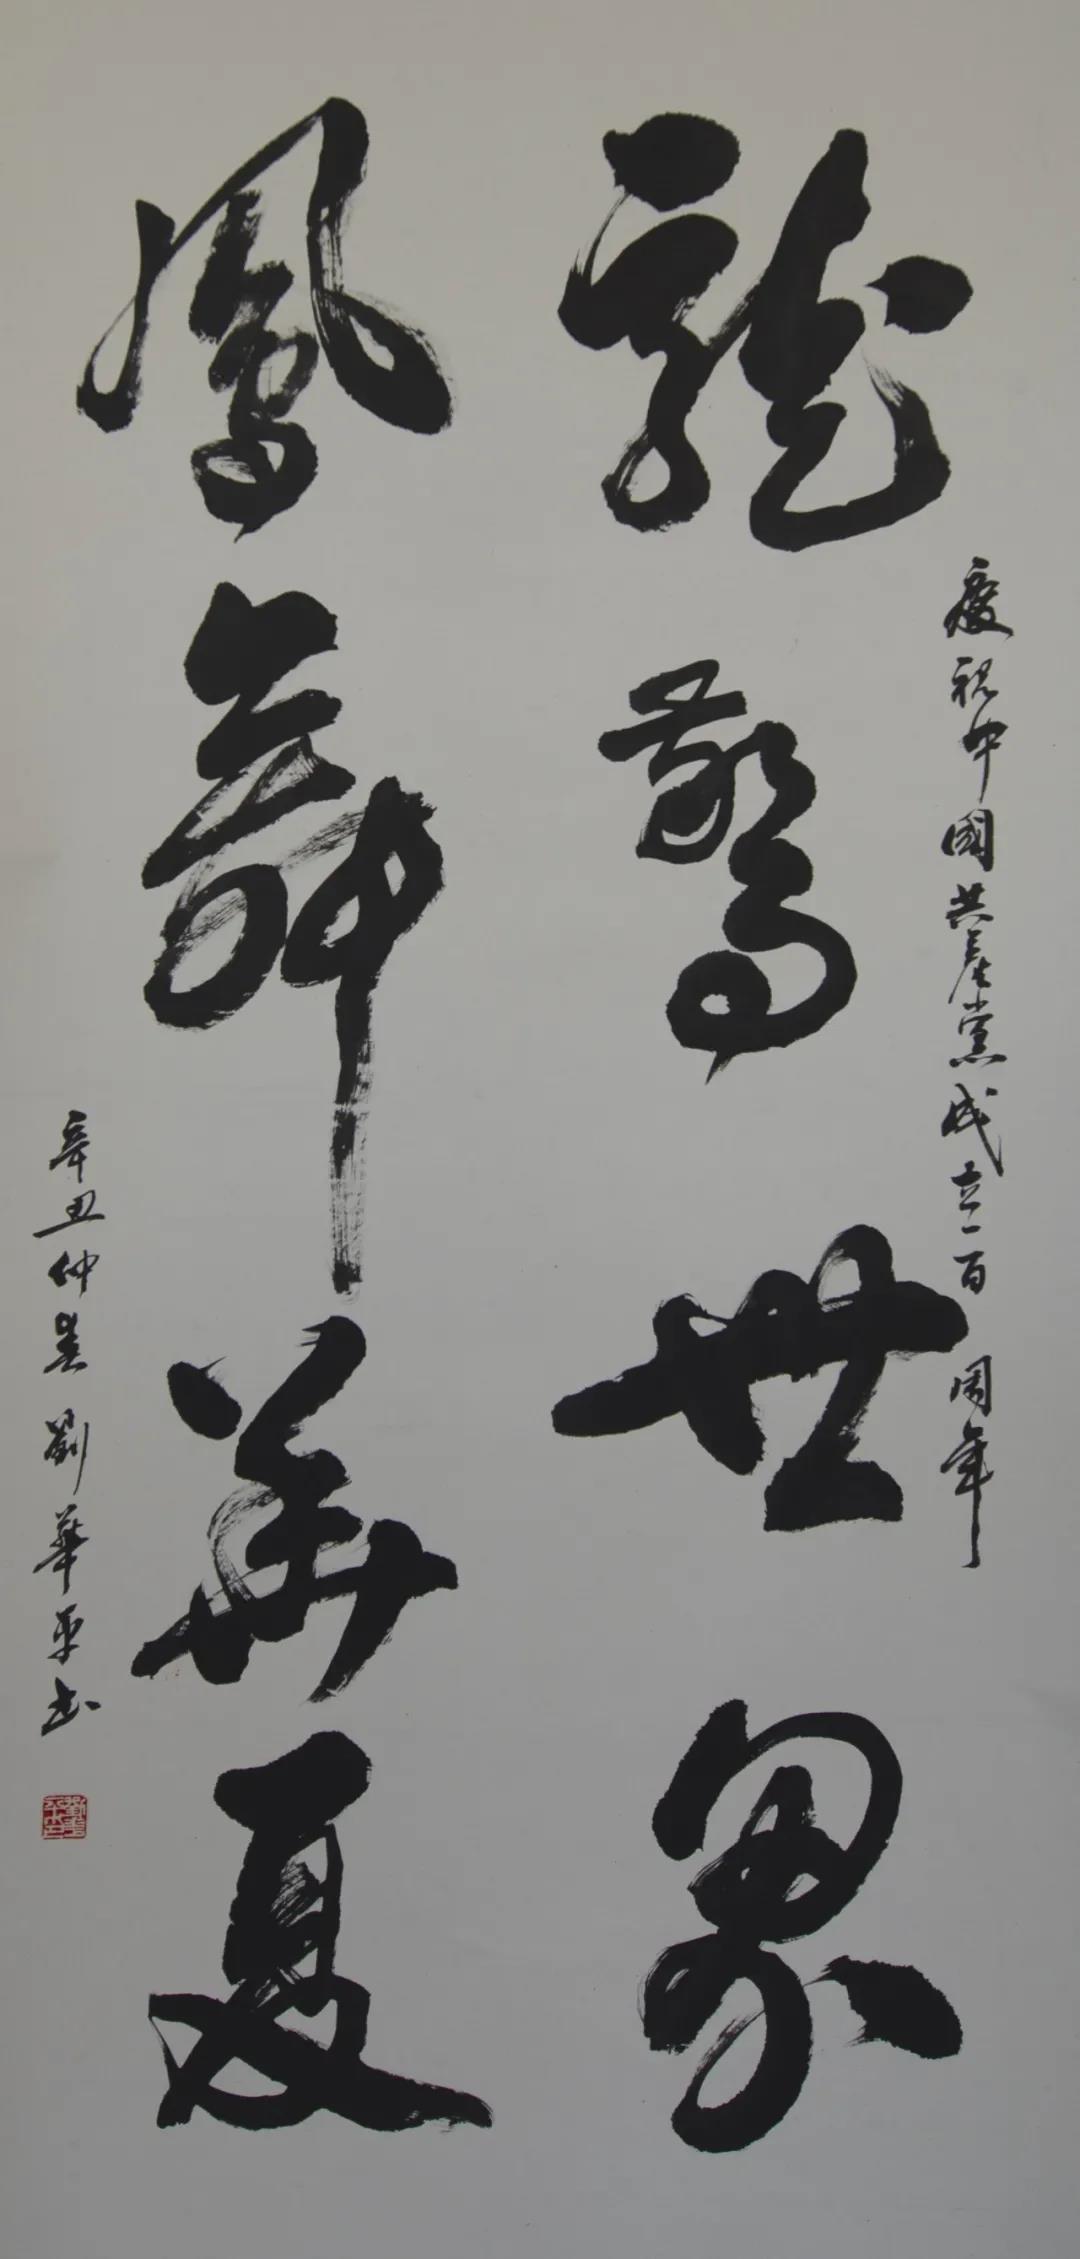 慶祝中國共產黨成立一百周年
龍驚世界
鳳舞華夏
辛丑仲春劉華平书